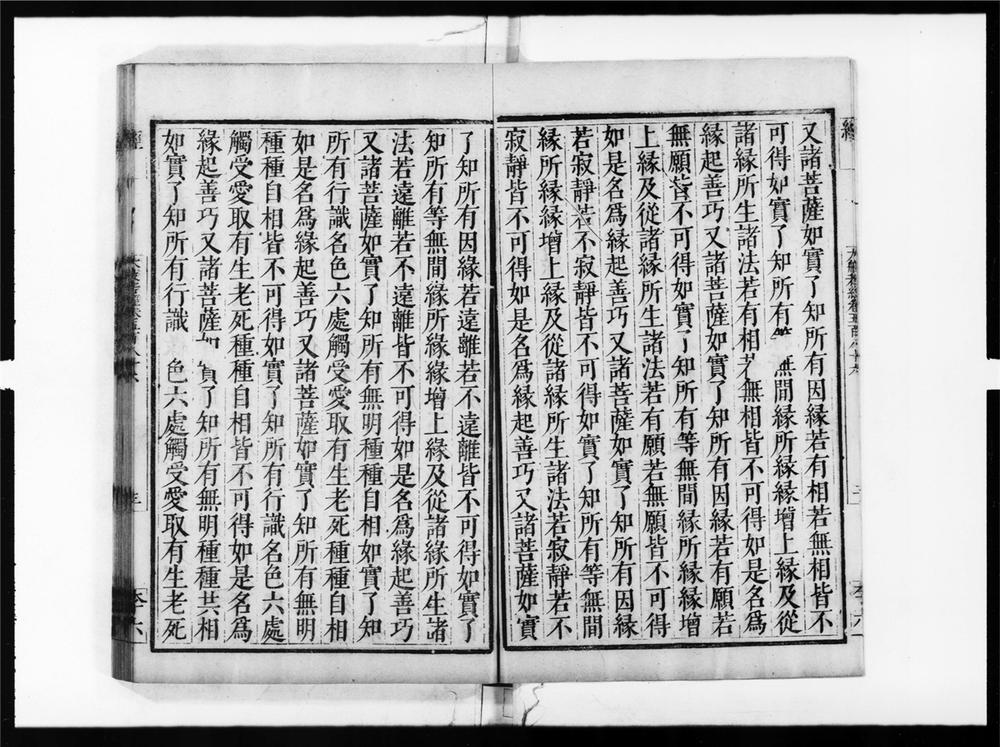 又諸菩薩如實了知所有因緣若有相若無相皆不
可得如實了知所有等無間緣所緣緣增上緣及從
諸緣所生諸法若有相若無相皆不可得如是名爲
緣起善巧又諸菩薩如實了知所有因緣若有願若
無願皆不可得如實了知所有等無間緣所緣緣增
上緣及從諸緣所生諸法若有願若無願皆不可得
如是名爲緣起善巧又諸菩薩如實了知所有因緣
若寂靜若不寂靜皆不可得如實了知所有等無間
緣所緣緣增上緣及從諸緣所生諸法若寂靜若不
寂靜皆不可得如是名爲緣起善巧又諸菩薩如實
了知所有因緣若遠離若不遠離皆不可得如實了
知所有等無間緣所緣緣增上緣及從諸緣所生諸
法若遠離若不遠離皆不可得如是名爲緣起善巧
又諸菩薩如實了知所有無明種種自相如實了知
所有行識名色六處觸受愛取有生老死種種自相
如是名爲緣起善巧又諸菩薩如實了知所有無明
種種自相皆不可得如實了知所有行識名色六處
觸受愛取有生老死種種自相皆不可得如是名爲
緣起善巧又諸菩薩如實了知所有無明種種共相
如實了知所有行識色六處觸受愛取有生老死